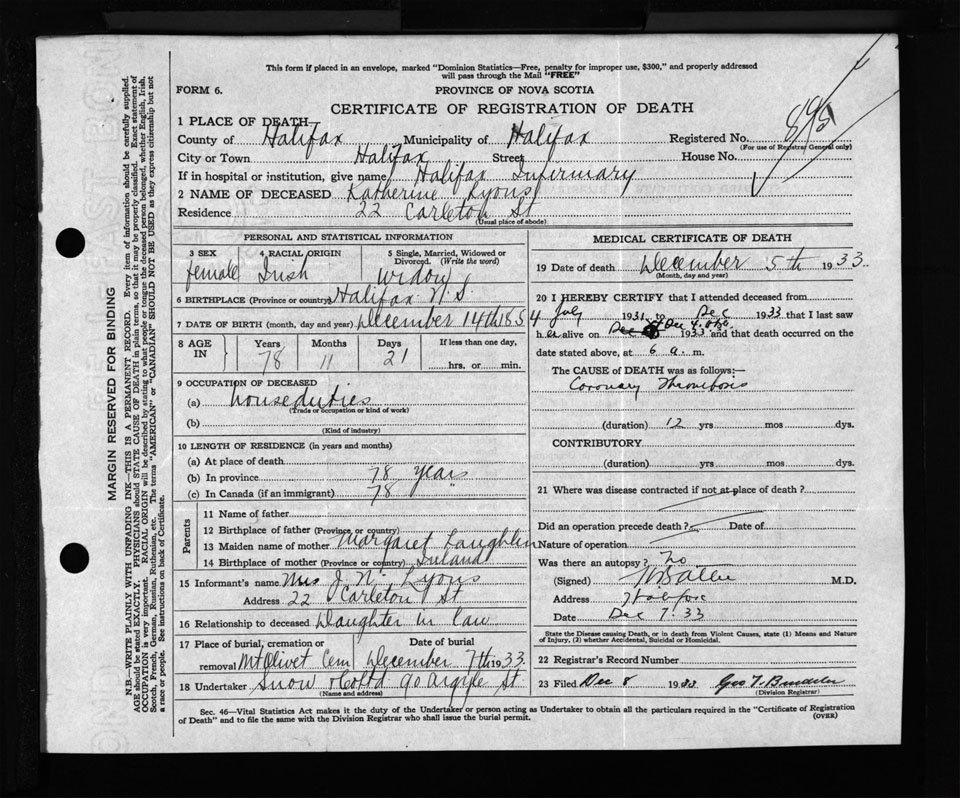 This form if placed in an envelope, marked "Dominion Statistics—Free, penalty for improper use, $300," and properly addressed
will pass through the Mail "FREE"
FORM 6.
PROVINCE OF NOVA SCOTIA
CERTIFICATE OF REGISTRATION OF DEATH
1 PLACE OF DEATH
County of Halifax Municipality of Halifax Registered No. 895
(For use of Registrar General only)
City or Town Halifax Street House No.
If in hospital or institution, give name Halifax Infirmary
2 NAME OF DECEASED Katherine Lyons
Residence 22 Carleton St
(Usual place of abode)
PERSONAL AND STATISTICAL INFORMATION
3 SEX 4 RACIAL ORIGIN 5 Single, Married, Widowed or Divorced. (Write the word)
female Irish widow
6 BIRTHPLACE (Province or country) Halifax N.S
7 DATE OF BIRTH (month, day and year) December 14th 185
8 AGE IN Years Months Days If less than one day,
78 11 21 hrs. or min.
9 OCCUPATION OF DECEASED
(a) houseduties
(Trade or occupation or kind of work)
(b)
(Kind of industry)
10 LENGTH OF RESIDENCE (in years and months)
(a) At place of death
(b) In province 78 years
(c) In Canada (if an immigrant) 78 "
Parents
11 Name of father
12 Birthplace of father (Province or country)
13 Maiden name of mother Margaret Laughlin
14 Birthplace of mother (Province or country) Ireland
15 Informant's name Mrs J. N. Lyons
Address 22 Carleton St
16 Relationship to deceased Daughter in law
17 Place of burial, cremation or removal Date of burial
Mt Olivet Cem December 7th 1933
18 Undertaker Snow & Co Ltd 90 Argyle St.
(Name and address)
MEDICAL CERTIFICATE OF DEATH
19 Date of death December 5th 1933
(Month, day and year)
20 I HEREBY CERTIFY that I attended deceased from
4 July 1931 to Dec 1933 that I last saw
h er alive on Dec 4 1933 and that death occurred on the
date stated above, at 6 a. m.
The CAUSE of DEATH was as follows:—
Coronary Thrombosis
(duration) 12 yrs mos. dys.
CONTRIBUTORY
(duration) yrs mos. dys.
21 Where was disease contracted if not at place of death?
Did an operation precede death? Date of
Nature of operation
Was there an autopsy? No
(Signed) M.D.
Address Halifax
Date Dec 7. 33
State the Disease causing Death, or in death from Violent Causes, state (1) Means and Nature
of Injury, (2) whether Accidental, Suicidal or Homicidal.
22 Registrar's Record Number
23 Filed Dec 8 1933 Geo T.
(Division Registrar)
Sec. 46—Vital Statistics Act makes it the duty of the Undertaker or person acting as Undertaker to obtain all the particulars required in the "Certificate of Registration
of Death" and to file the same with the Division Registrar who shall issue the burial permit.
(OVER)
MARGIN RESERVED FOR BINDING
N.B.—WRITE PLAINLY WITH UNFADING INK—THIS IS A PERMANENT RECORD. Every item of information should be carefully supplied.
AGE should be stated EXACTLY. PHYSICIANS should STATE CAUSE OF DEATH in plain terms, so that it may be properly classified. Exact statement of
OCCUPATION is very important. RACIAL ORIGIN will be described by stating to what people or tongue the deceased person belonged, whether English, Irish,
Scotch, French, German, Russian, Ruthenian, etc. The terms "AMERICAN" or "CANADIAN" SHOULD NOT BE USED as they express citizenship but not
a race or people. See instructions on back of Certificate.